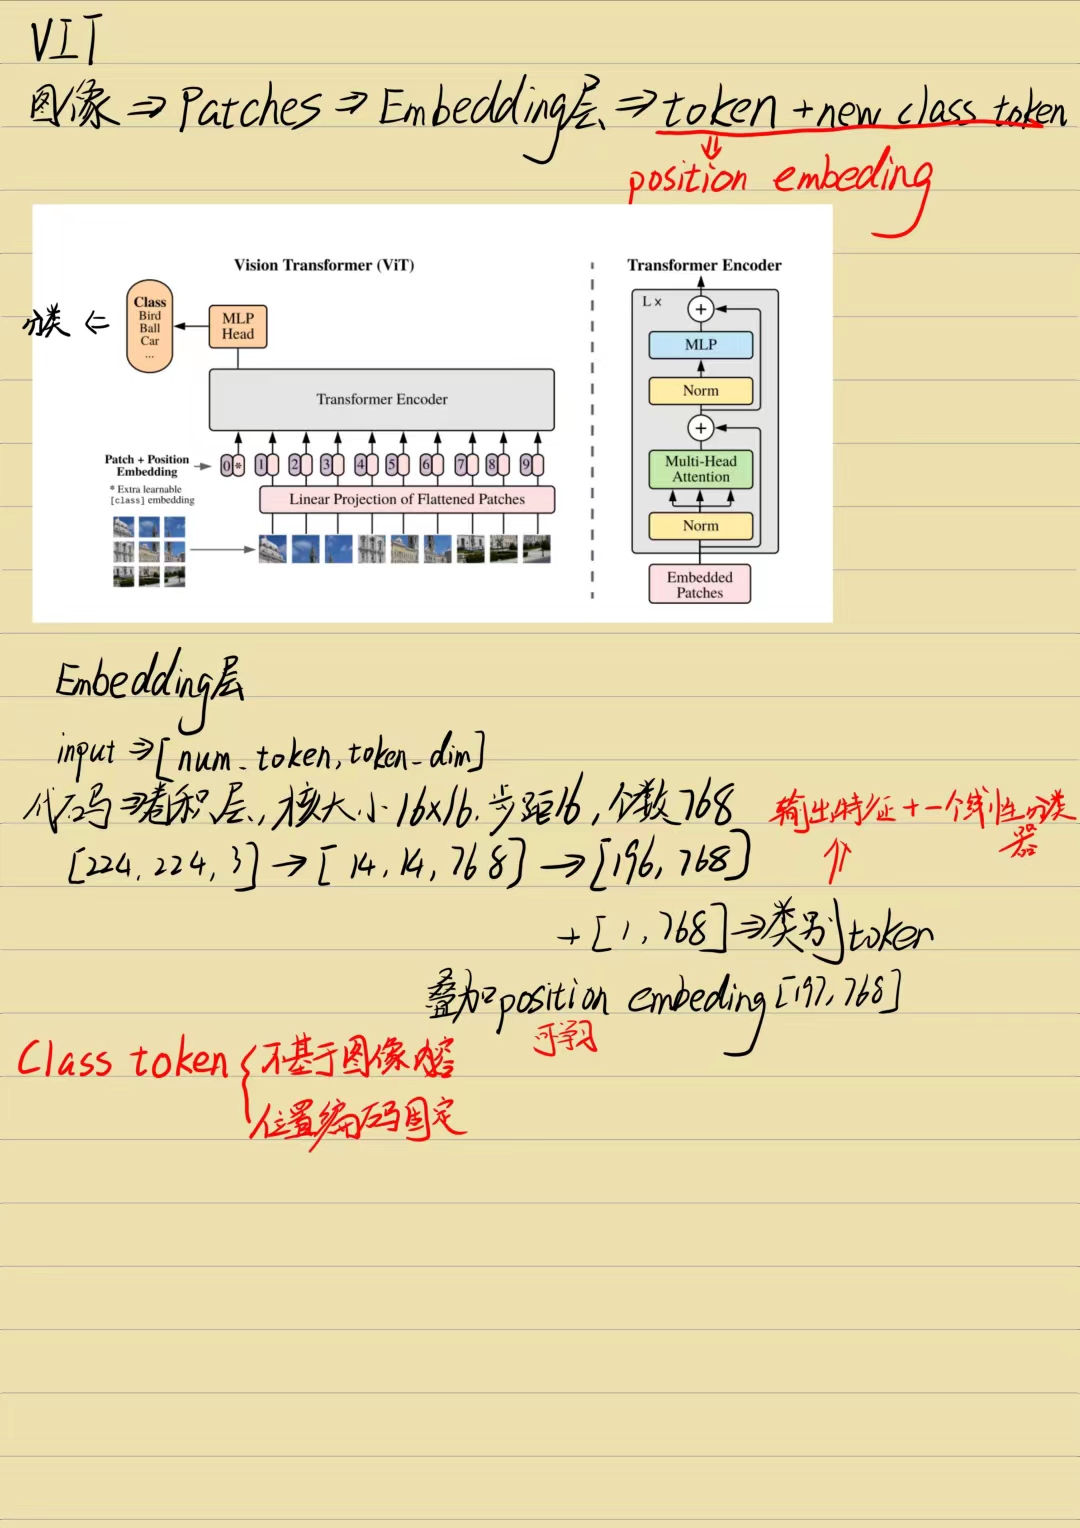 VIT
图像⇒Patches⇒Embedding层⇒token+new class token
⇓
position embeding
Vision Transformer (ViT)
Transformer Encoder
分类 ⇐
Class
Bird
Ball
Car
...
MLP
Head
Transformer Encoder
Patch + Position
Embedding
* Extra learnable
[class] embedding
0* 1 2 3 4 5 6 7 8 9
Linear Projection of Flattened Patches
L x
+
MLP
Norm
+
Multi-Head
Attention
Norm
Embedded
Patches
Embedding层
input⇒[num_token,token_dim]
代码⇒卷积层,核大小16x16.步距16,个数768
输出特征+一个线性分类器
[224,224,3]→[14,14,768]→[196,768]
⇑
+[1,768]⇒类别token
叠加position embeding[197,768]
可学习
Class token{不基于图像内容
位置编码固定